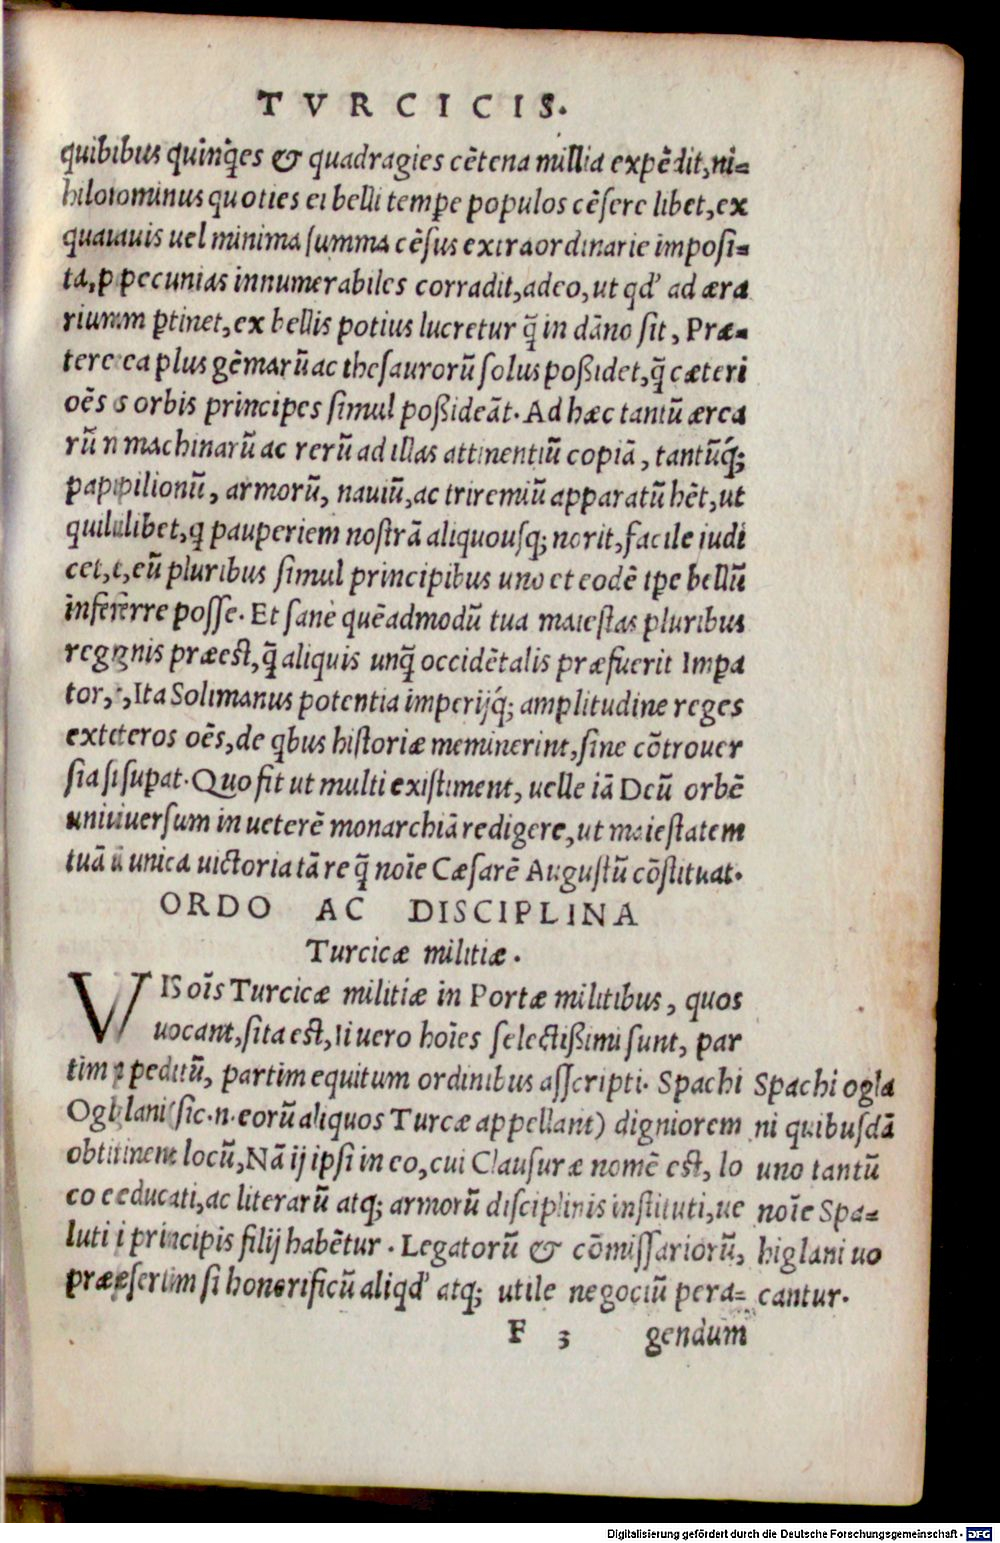 TVRCICIS.
quibus quinq̃es & quadragies cẽtena millia expẽdit, ni=
hilominus quoties ei belli tempe populos cẽsere libet, ex
quauis uel minima summa cẽsus extraordinarie imposi=
ta, p pecunias innumerabiles corradit, adeo, ut qd' ad æra
rium ptinet, ex bellis potius lucretur q̃ in dãno sit, Præ=
terea plus gẽmarũ ac thesaurorũ solus poßidet, q̃ cæteri
oẽs orbis principes simul poßideãt. Ad hæc tantũ ærea
rũ machinarũ ac rerũ ad illas attinentiũ copiã, tantũq;
papilionũ, armorũ, nauiũ, ac triremiũ apparatũ hẽt, ut
quilibet, q pauperiem nostrã aliquousq; norit, facile iudi
cet, eũ pluribus simul principibus uno et eodẽ tpe bellũ
inferre posse. Et sanè quẽadmodũ tua maiestas pluribus
regnis præest, q̃ aliquis unq̃ occidẽtalis præfuerit Impa
tor, Ita Solimanus potentia imperijq́; amplitudine reges
exteros oẽs, de qbus historiæ meminerint, sine cõtrouer
sia supat. Quo fit ut multi existiment, uelle iã Deũ orbẽ
uniuersum in ueterẽ monarchiã redigere, ut maiestatem
tuã unica uictoria tã re q̃ noĩe Cæsarẽ Augustũ cõstituat.
ORDO AC DISCIPLINA
Turcicæ militiæ.
VIS oĩs Turcicæ militiæ in Portæ militibus, quos
uocant, sita est, Ii uero hoĩes selectißimi sunt, par
tim peditũ, partim equitum ordinibus asscripti. Spachi
Oglani (sic.n.eorũ aliquos Turcæ appellant) digniorem
obtinent locũ, Nã ij ipsi in eo, cui Clausuræ nomẽ est, lo
co educati, ac literarũ atq; armorũ disciplinis instituti, ue
luti principis filij habẽtur. Legatorũ & cõmissariorũ,
præsertim si honorificũ aliqd' atq; utile negociũ pera=
Spachi ogla
ni quibusdã
uno tantũ
noĩe Spa=
higlani uo
cantur.
F 3 gendum
Digitalisierung gefördert durch die Deutsche Forschungsgemeinschaft - DFG